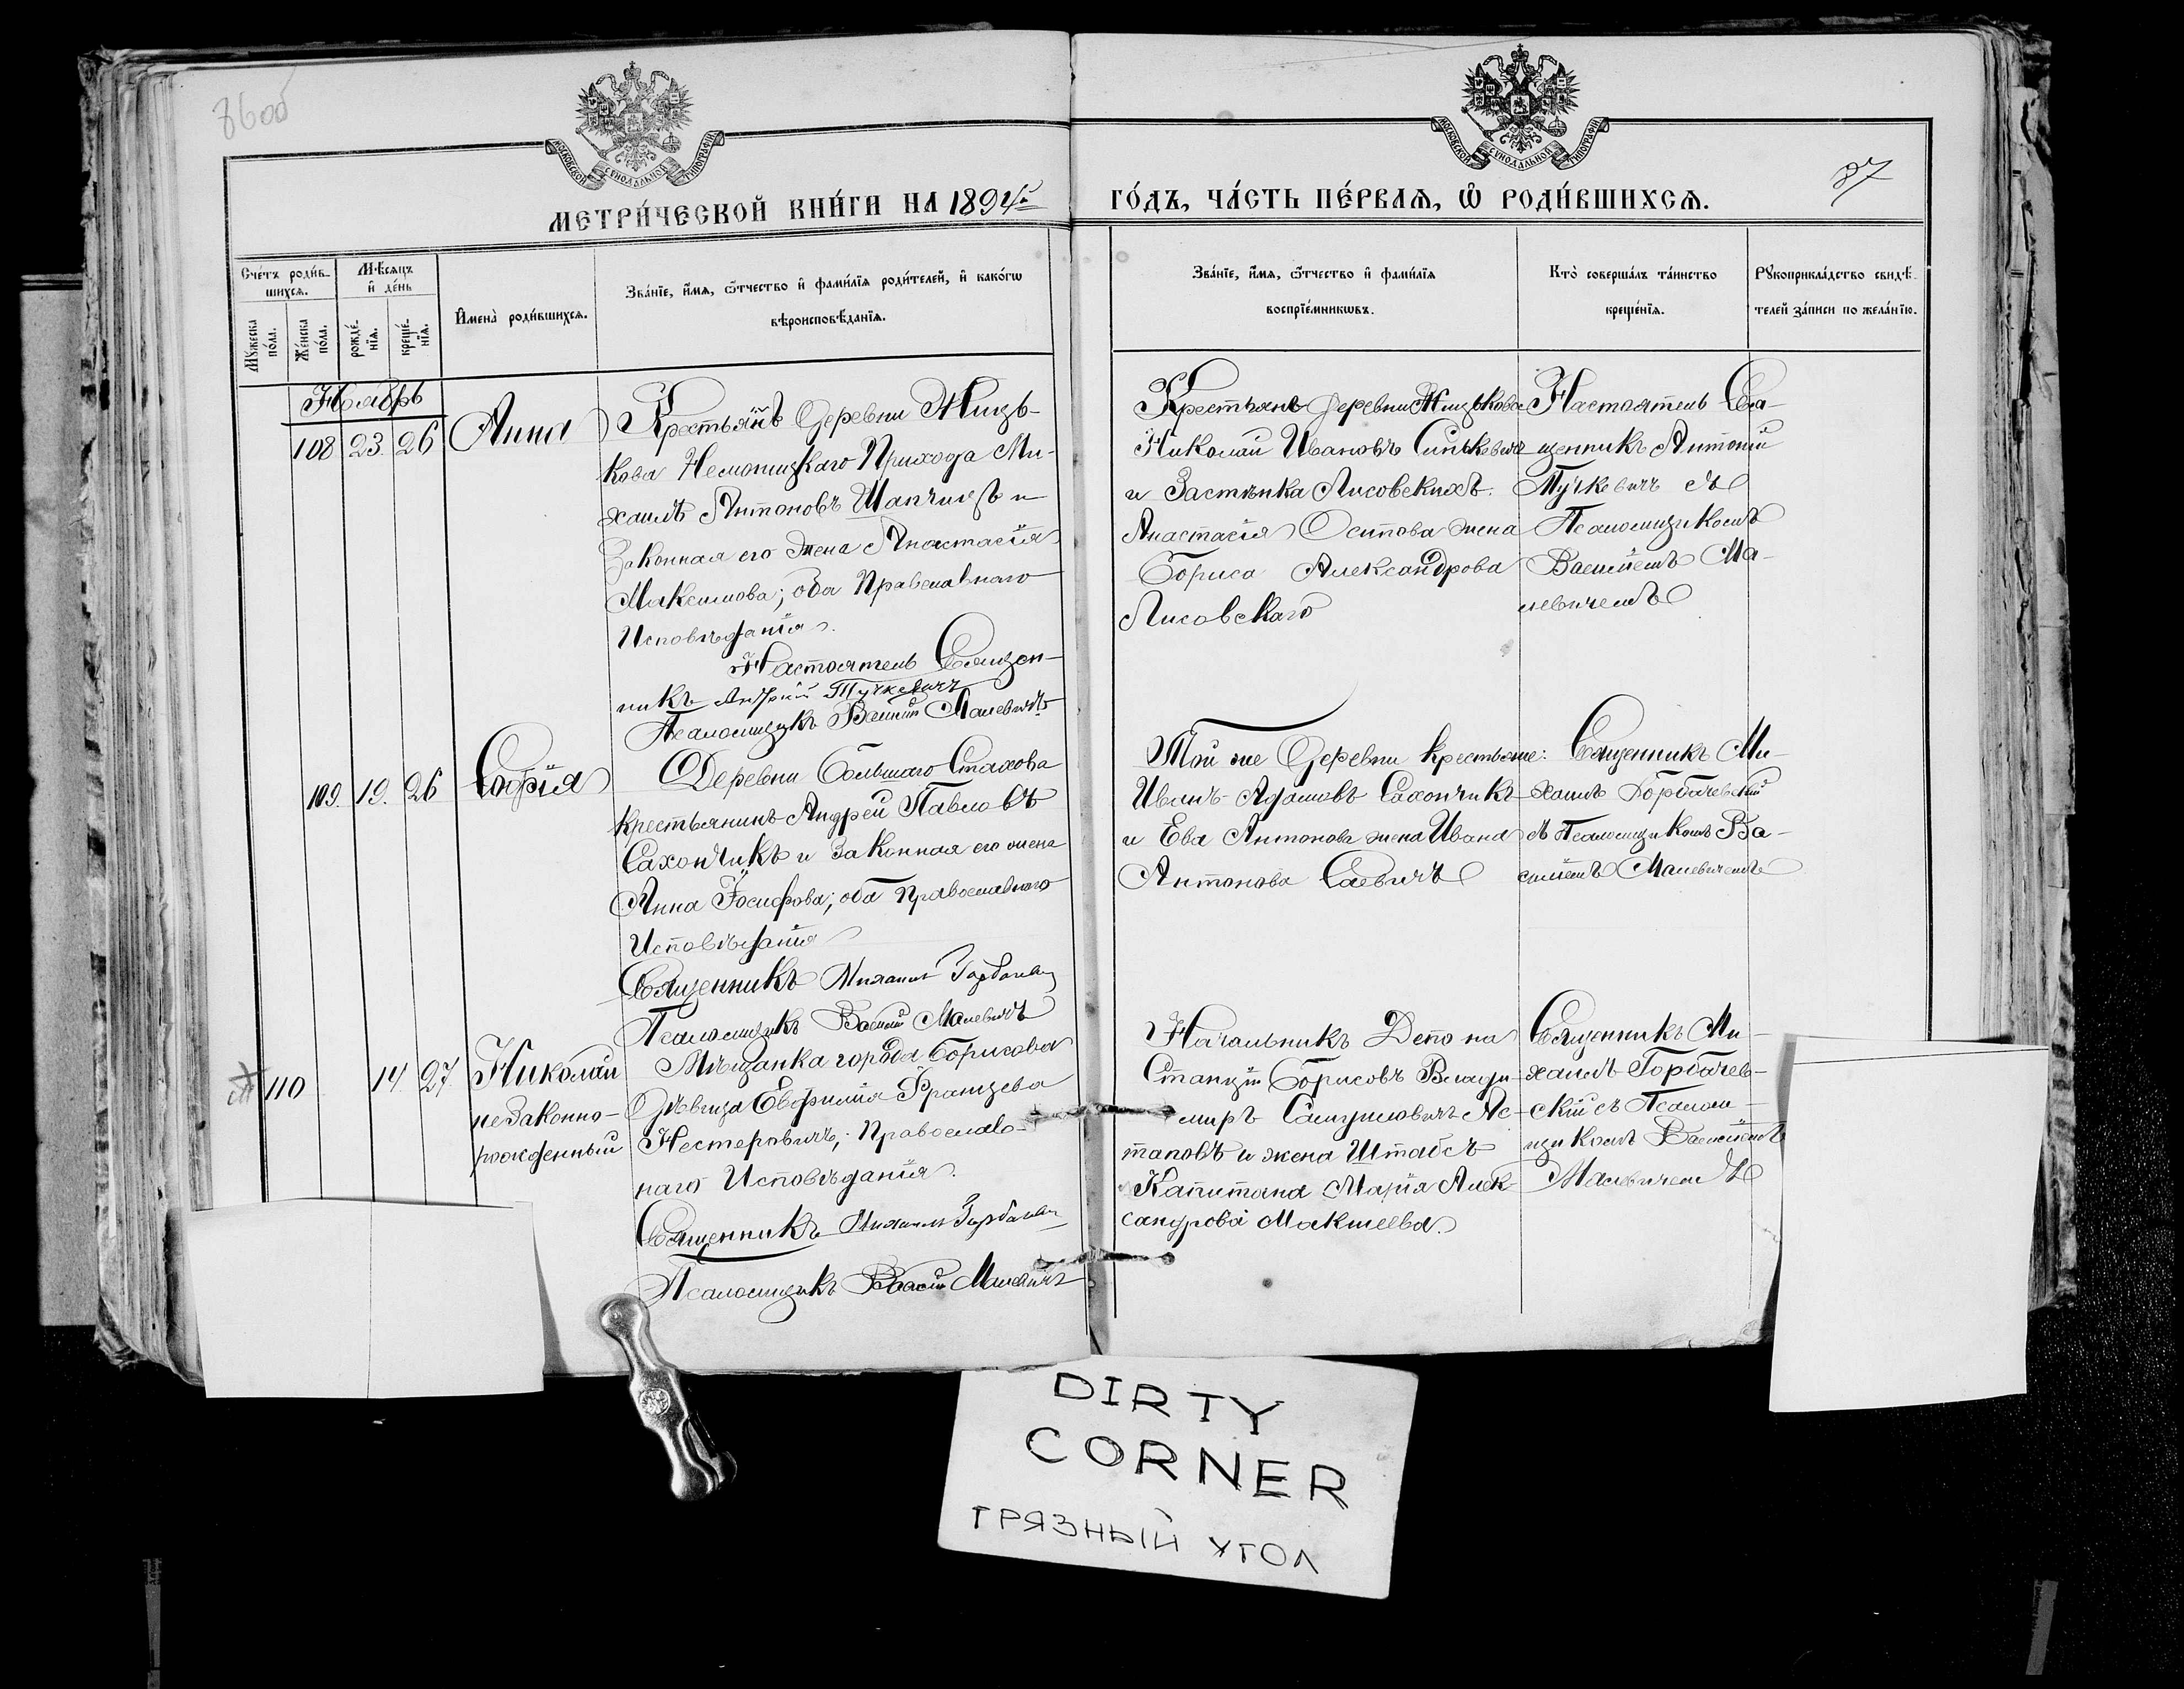 860об
37
МОСКОВСКОЙ СѴНОДАЛЬНОЙ ТИПОГРАФІИ
МОСКОВСКОЙ СѴНОДАЛЬНОЙ ТИПОГРАФІИ
МЕТРИ́ЧЕСКОЙ КНИ́ГИ НА 1894й
ГО́ДЪ, ЧА́СТЬ ПЕ́РВАѦ, Ѡ РОДИ́ВШИХСѦ.
Сче́тъ роди́в-
шихсѧ.
Мꙋжеска по́ла.
Же́нска по́ла.
Мѣ́сѧцъ
и҆ де́нь
рожде́-
нїѧ.
креще́-
нїѧ.
И҆мена̀ роди́вшихсѧ.
Зва́нїе, и҆́мѧ, ѻ҆́тчество и҆ фами́лїѧ роди́телей, и҆ како́гѡ
вѣроисповѣ́данїѧ.
Зва́нїе, и҆́мѧ, ѻ҆́тчество и҆ фами́лїѧ
воспрїе́мникѡвъ.
Кто̀ соверша́лъ та́инство
креще́нїѧ.
Рꙋкоприкла́дство свидѣ́-
телей за́писи по жела́нїю.
Ноябрь
108 23. 26 Анна
Крестьянъ Деревни Жицъ-
кова Немоницкаго Прихода Ми-
хаилъ Антоновъ Шапчицъ и
Законная его жена Анастасія
Максимова; оба Православнаго
Исповѣданія.
Настоятель Священ-
никъ Антоній Тучкевичъ
Псаломщикъ Василій Малевичъ
Крестьяне Деревни Жицькова
Николай Ивановъ Синькевичъ
и Застѣнка Лисовскихъ.
Анастасія Осипова жена
Бориса Александрова
Лисовскаго
Настоятель Свя-
щенникъ Антоній
Тучкевичъ съ
Псаломщикомъ
Василіемъ Ма-
левичемъ
109. 19. 26 Софія
Деревни Большаго Стахова
крестьянинъ Андрей Павловъ
Сахончикъ и Законная его жена
Анна Іосифова; оба Православнаго
Исповѣданія
Священникъ Михаилъ Горбачев
Псаломщикъ Василій Малевичъ
Той же Деревни крестьяне:
Иванъ Адамовъ Сахончикъ
и Ева Антонова жена Ивана
Антонова Саевичъ
Священникъ Ми-
хаилъ Горбачевскій
съ Псаломщикомъ Ва-
силіемъ Малевичемъ
110 14 27. Николай
незаконно-
рожденный
Мѣщанка города Борисова
Дѣвица Евфимія Францева
Нестеровичъ; Православ-
наго Исповѣданія.
Священникъ Михаилъ Горбачев
Псаломщикъ Василій Малевичъ
Начальникъ Депо на
Станціи Борисовъ Влади-
миръ Самуиловичъ Ас-
таповъ и жена Штабсъ
Капитана Марія Алек-
сандрова Макшеева.
Священникъ Ми-
хаилъ Горбачев-
скій съ Псалом-
щикомъ Василіемъ
Малевичемъ
DIRTY
CORNER
ГРЯЗНЫЙ УГОЛ